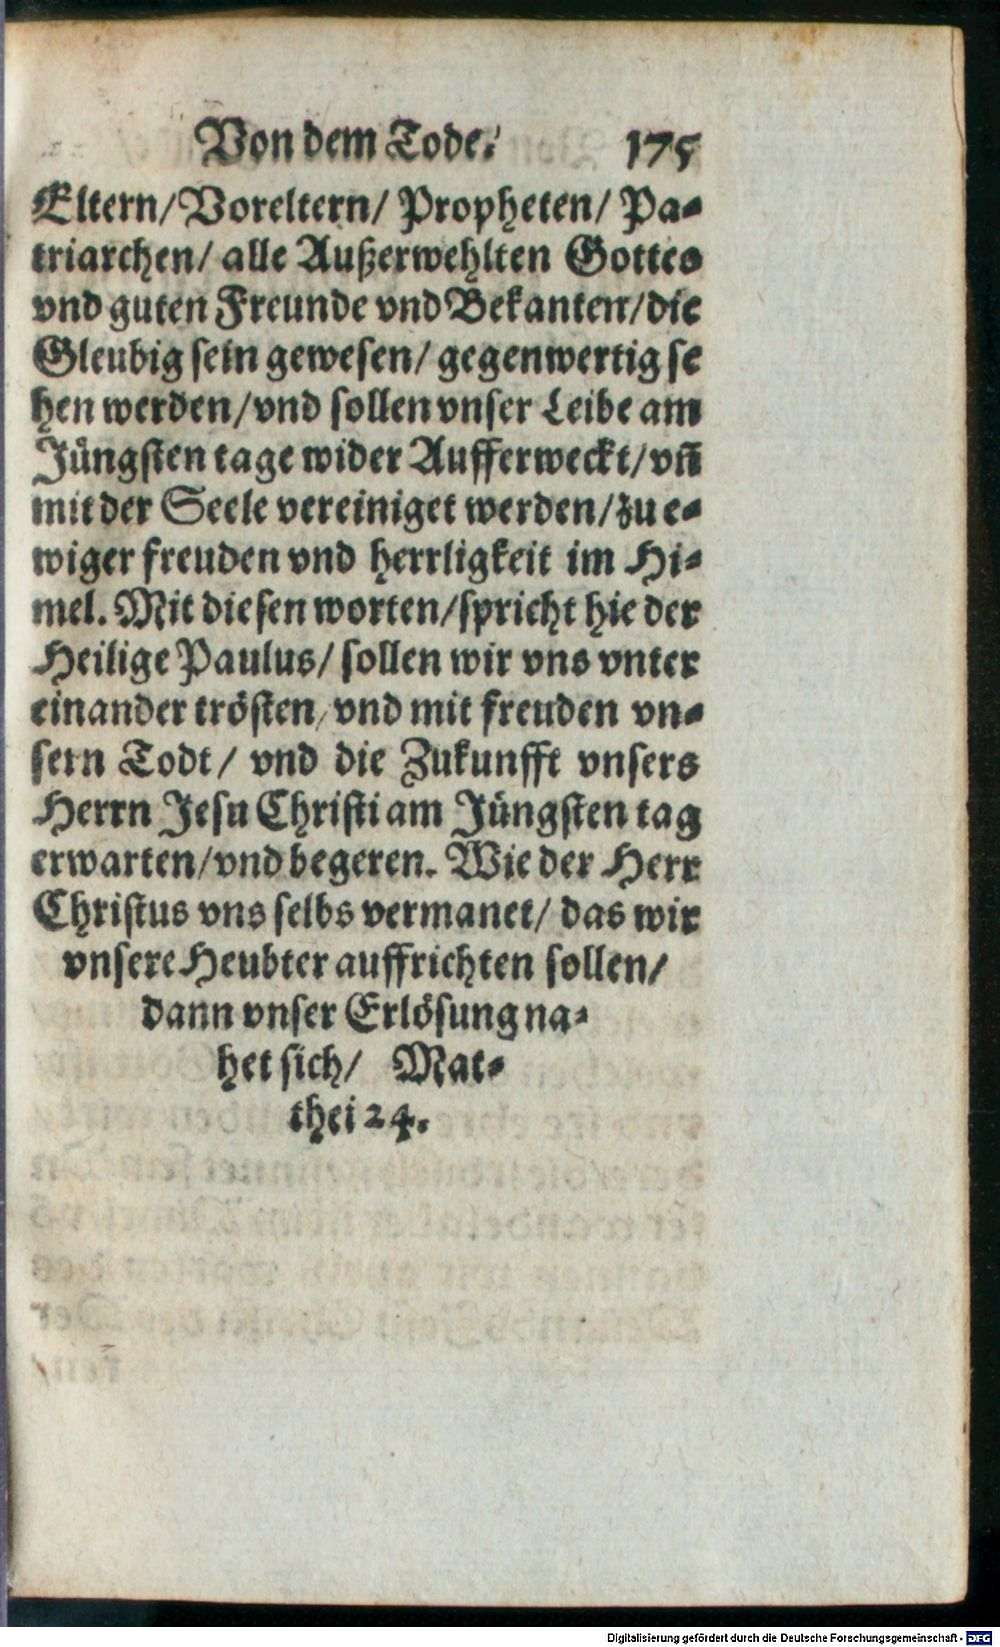 Von dem Tode. 175
Eltern/Voreltern/ Propheten/ Pa-
triarchen/ alle Außerwehlten Gottes
vnd guten Freunde vnd Bekanten/die
Gleubig sein gewesen/ gegenwertig se
hen werden/vnd sollen vnser Leibe am
Jüngsten tage wider Aufferweckt/vñ
mit der Seele vereiniget werden/zu e-
wiger freuden vnd herrligkeit im Hi-
mel. Mit diesen worten/spricht hie der
Heilige Paulus/ sollen wir vns vnter
einander trösten/vnd mit freuden vn-
sern Todt/ vnd die Zukunfft vnsers
Herrn Jesu Christi am Jüngsten tag
erwarten/vnd begeren. Wie der Herr
Christus vns selbs vermanet/ das wir
vnsere Heubter auffrichten sollen/
dann vnser Erlösung na-
het sich/ Mat-
thei 24.
Digitalisierung gefördert durch die Deutsche Forschungsgemeinschaft - DFG